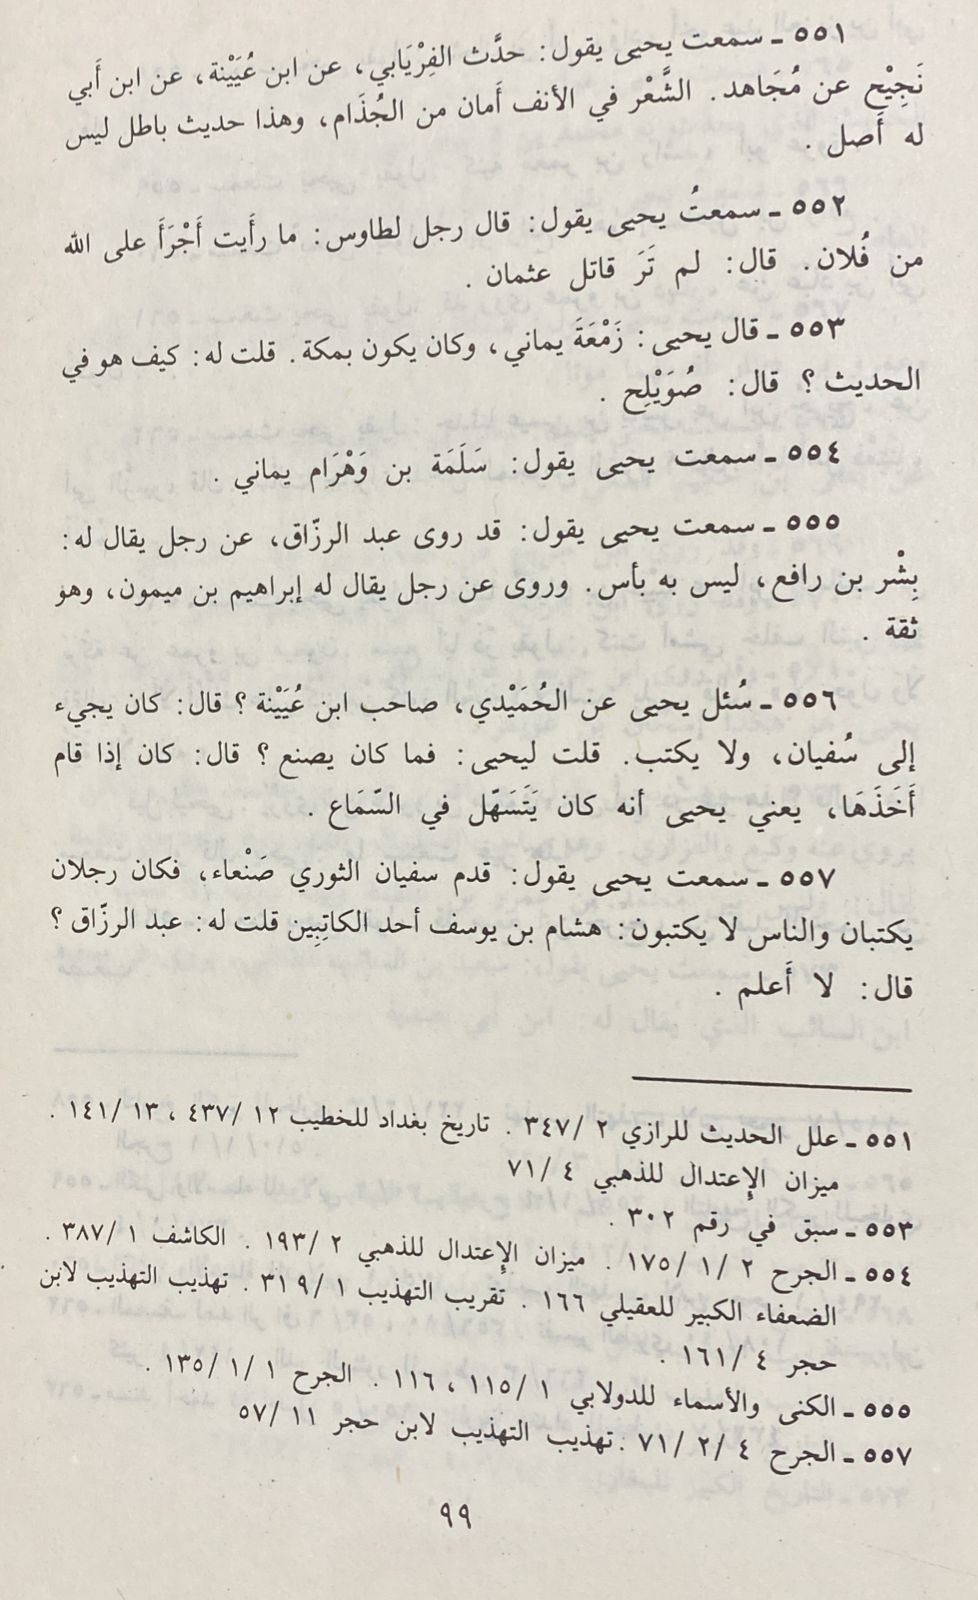 ٥٥١ ـ سمعت يحيى يقول: حدَّث الفِرْيَابي، عن ابن عُيَيْنة، عن ابن أَبي
نَجِيْح عن مُجَاهد. الشَّعْر في الأنف أَمان من الجُذَام، وهذا حديث باطل ليس
له أَصل .
٥٥٢ ـ سمعتُ يحيى يقول: قال رجل لطاوس: ما رأَيت أَجْرَأَ على الله
من فُلان. قال: لم تَرَ قاتل عثمان .
٥٥٣ ـ قال يحيى: زَمْعَةَ يماني، وكان يكون بمكة. قلت له: كيف هو في
الحديث؟ قال: صُوَيْلِح .
٥٥٤ ـ سمعت يحيى يقول: سَلَمَة بن وَهْرَام يماني .
٥٥٥ ـ سمعت يحيى يقول: قد روى عبد الرزّاق، عن رجل يقال له:
بِشْر بن رافع، ليس به بأس. وروى عن رجل يقال له إبراهيم بن ميمون، وهو
ثقة .
٥٥٦ ـ سُئل يحيى عن الحُمَيْدي، صاحب ابن عُيَيْنة؟ قال: كان يجيء
إلى سُفيان، ولا يكتب. قلت ليحيى: فما كان يصنع؟ قال: كان إذا قام
أَخَذَهَا، يعني يحيى أنه كان يَتَسَهّل في السّمَاع .
٥٥٧ ـ سمعت يحيى يقول: قدم سفيان الثوري صَنْعاء، فكان رجلان
يكتبان والناس لا يكتبون: هشام بن يوسف أحد الكاتِبِين قلت له: عبد الرزّاق؟
قال: لا أَعلم .
٥٥١ ـ علل الحديث للرازي ٢ /٣٤٧ . تاريخ بغداد للخطيب ١٢ /٤٣٧ ، ١٣ /١٤١ .
ميزان الإِعتدال للذهبي ٤ /٧١
٥٥٣ ـ سبق في رقم ٣٠٢ .
٥٥٤ ـ الجرح ٢ /١ /١٧٥ . ميزان الإِعتدال للذهبي ٢ /١٩٣ . الكاشف ١ /٣٨٧ .
الضعفاء الكبير للعقيلي ١٦٦ . تقريب التهذيب ١ /٣١٩ . تهذيب التهذيب لابن
حجر ٤ /١٦١ .
٥٥٥ ـ الكنى والأسماء للدولابي ١ /١١٥ ، ١١٦ . الجرح ١ /١ /١٣٥ .
٥٥٧ ـ الجرح ٤ /٢ /٧١ .تهذيب التهذيب لابن حجر ١١ /٥٧
٩٩